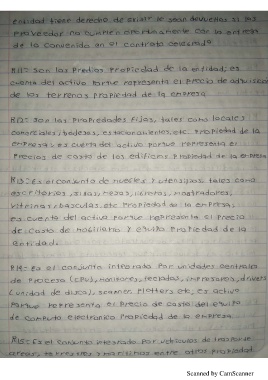 entidad tiene derecho de exigir le sean devueltos si los
proveedor no cumplen directamente con la entrega
de lo convenido en el contrato
R11= Son los Predios Propiedad de la entidad, es
cuenta del activo porque representa el precio de
de los terrenos propiedad de la empresa
R12= Son las Propiedades fijas, tales como locales
comerciales, bodegas, estacionamientos, etc. Propiedad de la
empresa. es cuenta del activo porque representa el
Precios de costo de los edificios Propiedad de la empresa
R13= Es el conjunto de muebles y utensilios tales como
escritorios, sillas, mesas, libreros, mostradores,
vitrinas, basculas, etc Propiedad de la empresa,
es cuenta del activo porque representa el Precio
de costo de mobiliario y equipo Propiedad de la
entidad.
R14= Es el conjunto integrado Por unidades centrales
de Proceso (CPUs, monitores, teclados, impresoras, drives
(unidad de disco), scanner, Plotters etc, es activo
Porque representa el Precio de costo del equipo
de computo electronico Propiedad de la empresa.
R15= Es el conjunto integrado Por vehiculos de transporte
aereos, terrestres y maritimos entre otros Propiedad
Scanned by CamScanner